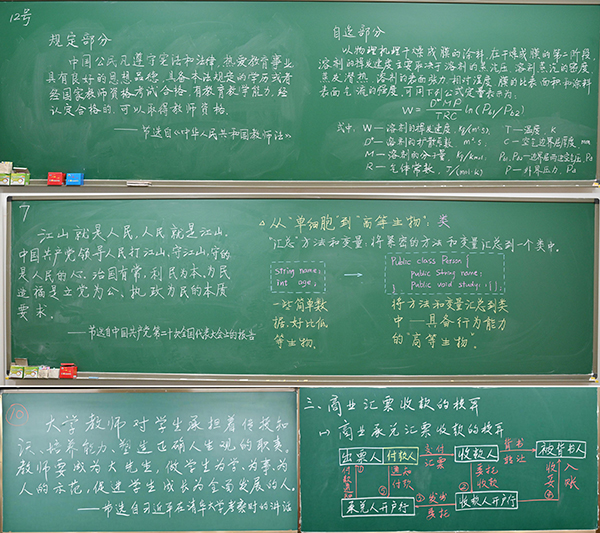 12号
规定部分
中国公民凡遵守宪法和法律，热爱教育事业，
具有良好的思想品德，具备本法规定的学历或者
经国家教师资格考试合格，有教育教学能力，经
认定合格的，可以取得教师资格。
——节选自《中华人民共和国教师法》
自选部分
以物理机理干燥成膜的涂料，在干燥成膜的第二阶段，
溶剂的挥发速度主要取决于溶剂的蒸汽压、溶剂蒸汽的密度、
蒸发潜热、溶剂的表面张力、相对湿度、膜的比表面积和涂料
表面气流的强度，可用下列公式定量表示为：
式中：W—溶剂的挥发速度，kg/(m²·s)；
T—温度，K
D*—溶剂的扩散系数，m²·s；
C—空气边界层厚度，mm
M—溶剂的分子量，kg/kmol；
R—气体常数，J/(mol·k)
P—外界压力，Pa
7
江山就是人民，人民就是江山。
中国共产党领导人民打江山、守江山，守的
是人民的心。治国有常，利民为本。为民
造福是立党为公、执政为民的本质
要求。
——节选自中国共产党第二十次全国代表大会上的报告
从"单细胞"到"高等生物"：类
"汇总"方法和变量：将紧密的方法和变量汇总到一个类中。
string name;
int age;
Public class Person {
public String name;
Public void study
一些简单数
据，好比低
等生物。
将方法和变量汇总到类
中—具备行为能力
的"高等生物"。
10
大学教师对学生承担着传授知
识、培养能力、塑造正确人生观的职责。
教师要成为大先生，做学生为学、为事、为
人的示范，促进学生成长为全面发展的人。
——节选自习近平在清华大学考察时的讲话
三、商业汇票收款的核算
商业承兑汇票收款的核算
出票人
付款人
支付
汇票
收款人
背书
转让
被背书人
付
款
通
知
通知
付款
委托
收款
收
妥
入
账
承兑人开户行
①发出
委托
收款人开户行